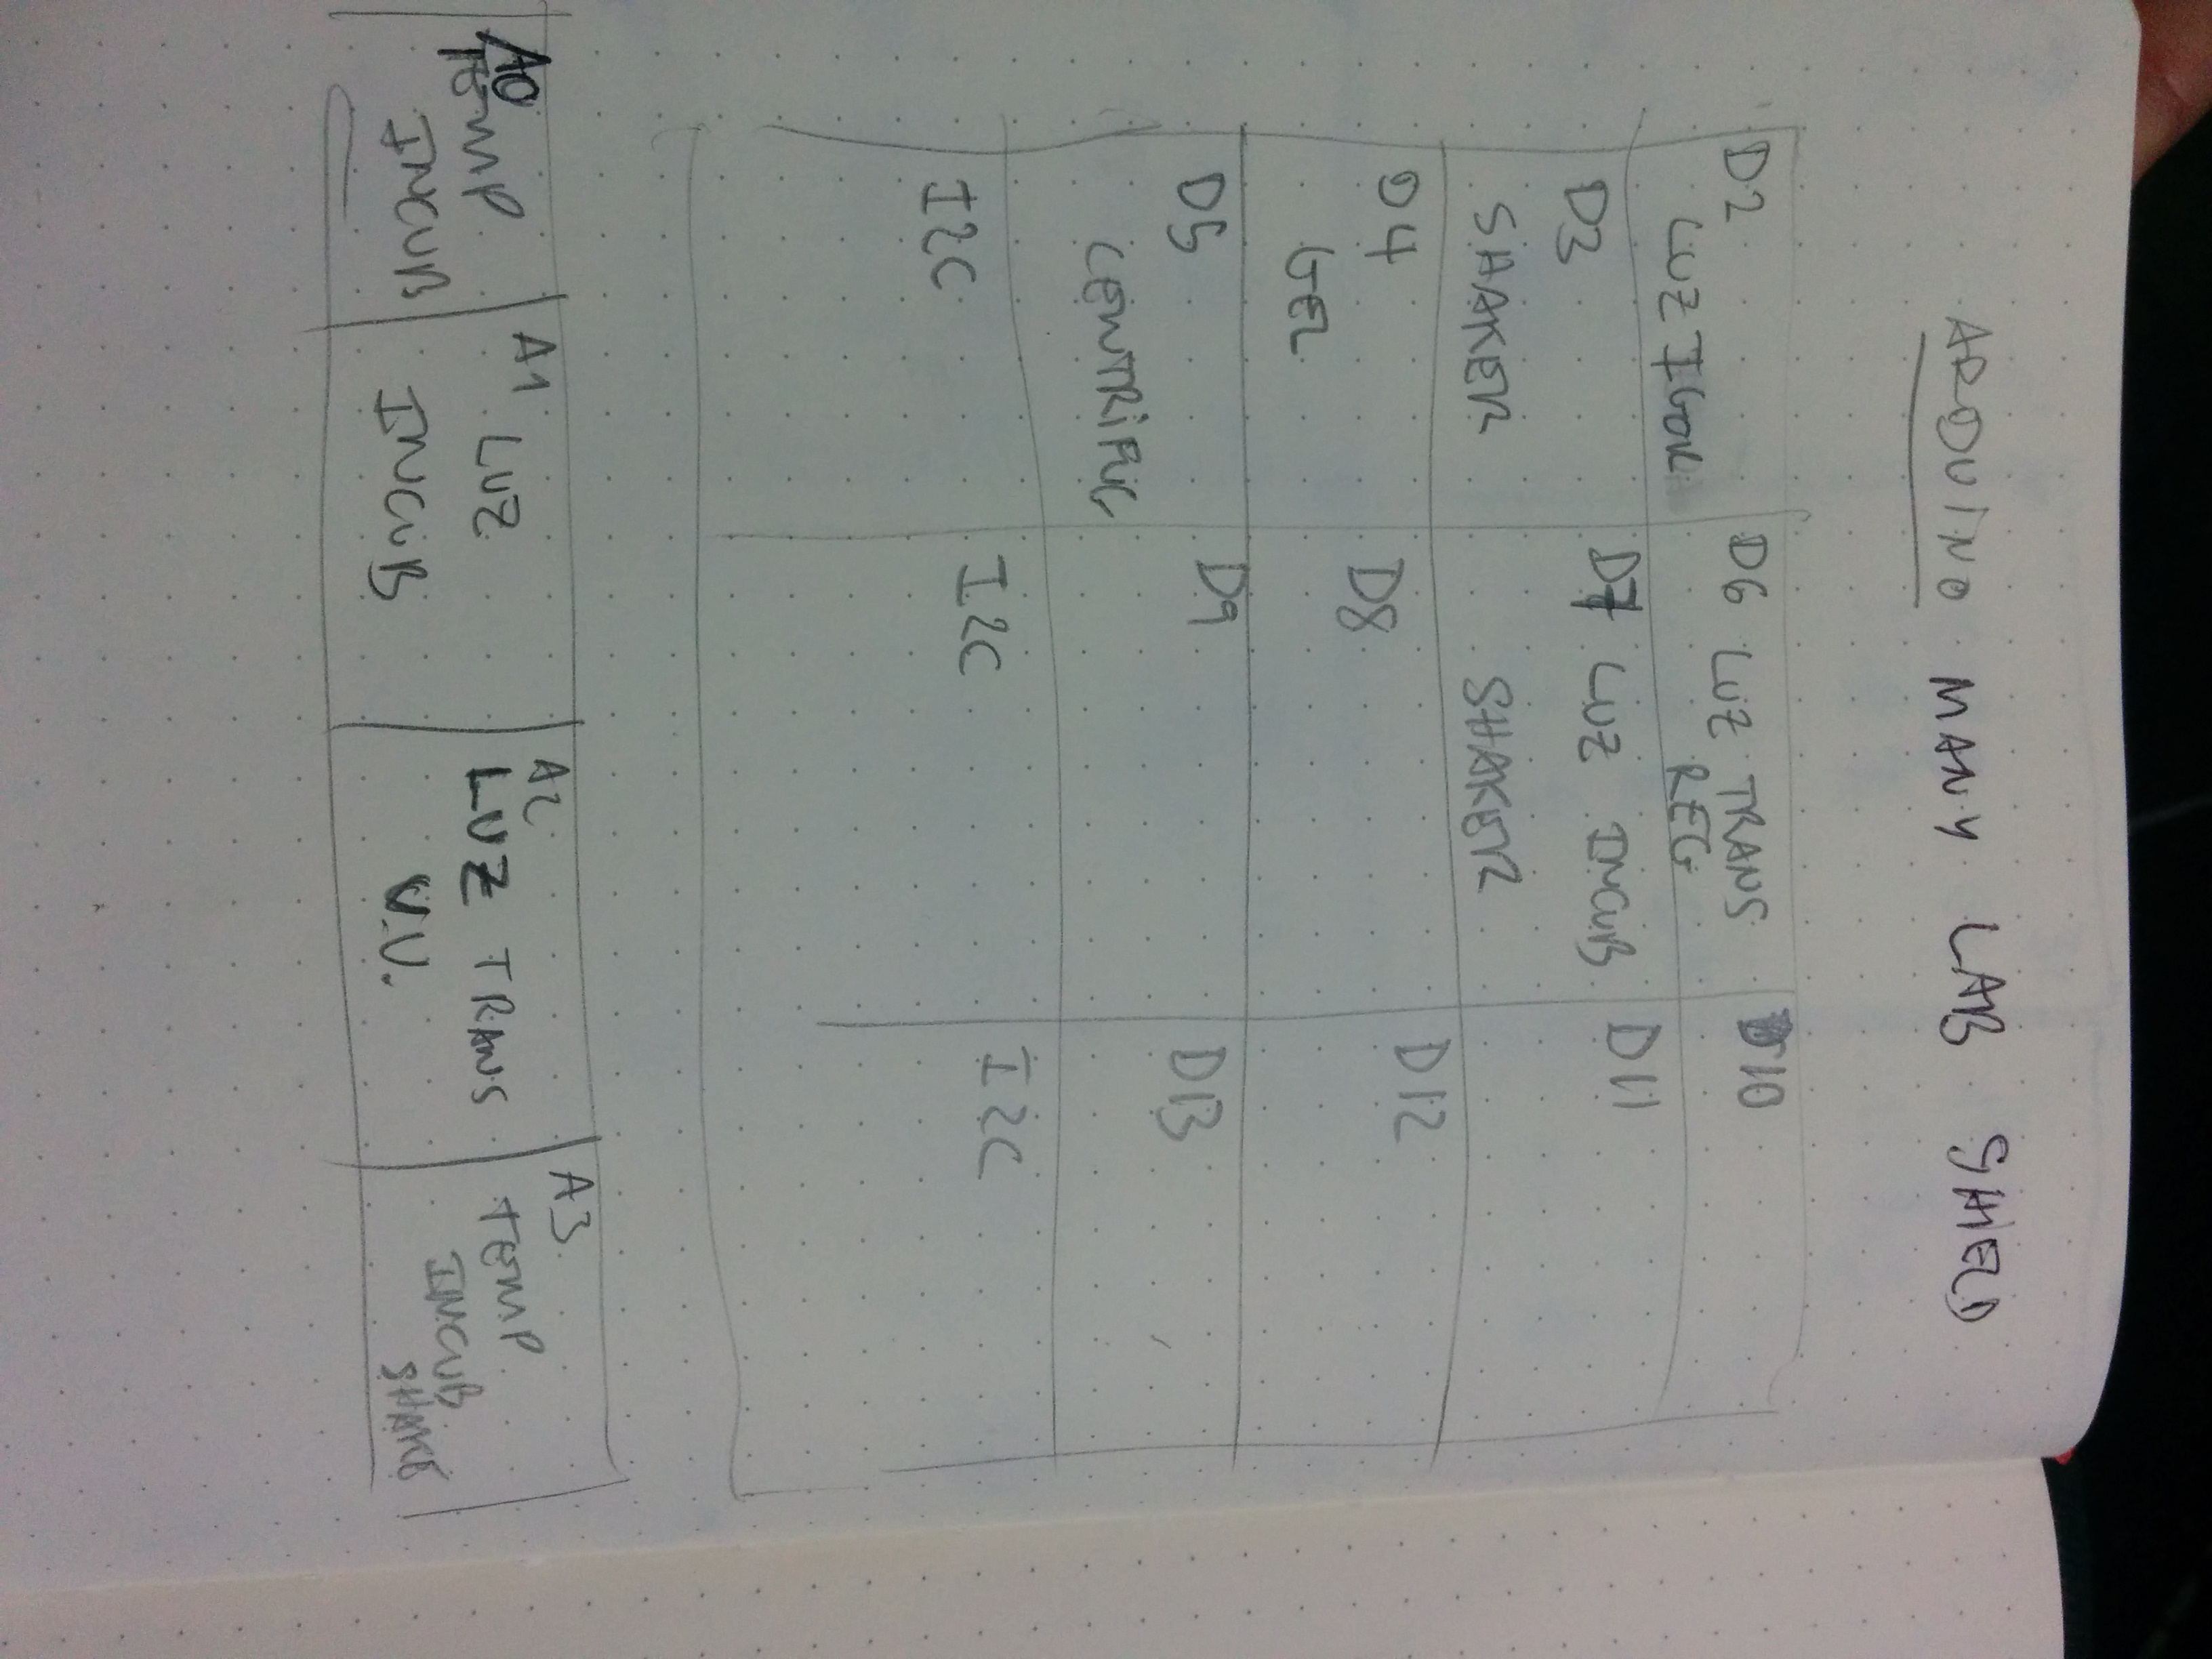 ARDUINO MANY LAB SHIELD
D2
LUZ IGOR
D6 LUZ TRANS
REG
D10
D3
SHAKER
D7 LUZ INCUB
SHAKER
D11
D4
GEL
D8
D12
D5
CENTRIFUG
D9
D13
I2C
I2C
I2C
A0
TEMP
INCUB
A1
LUZ
INCUB
A2
LUZ TRANS
U.V.
A3
TEMP
INCUB
SHAKE